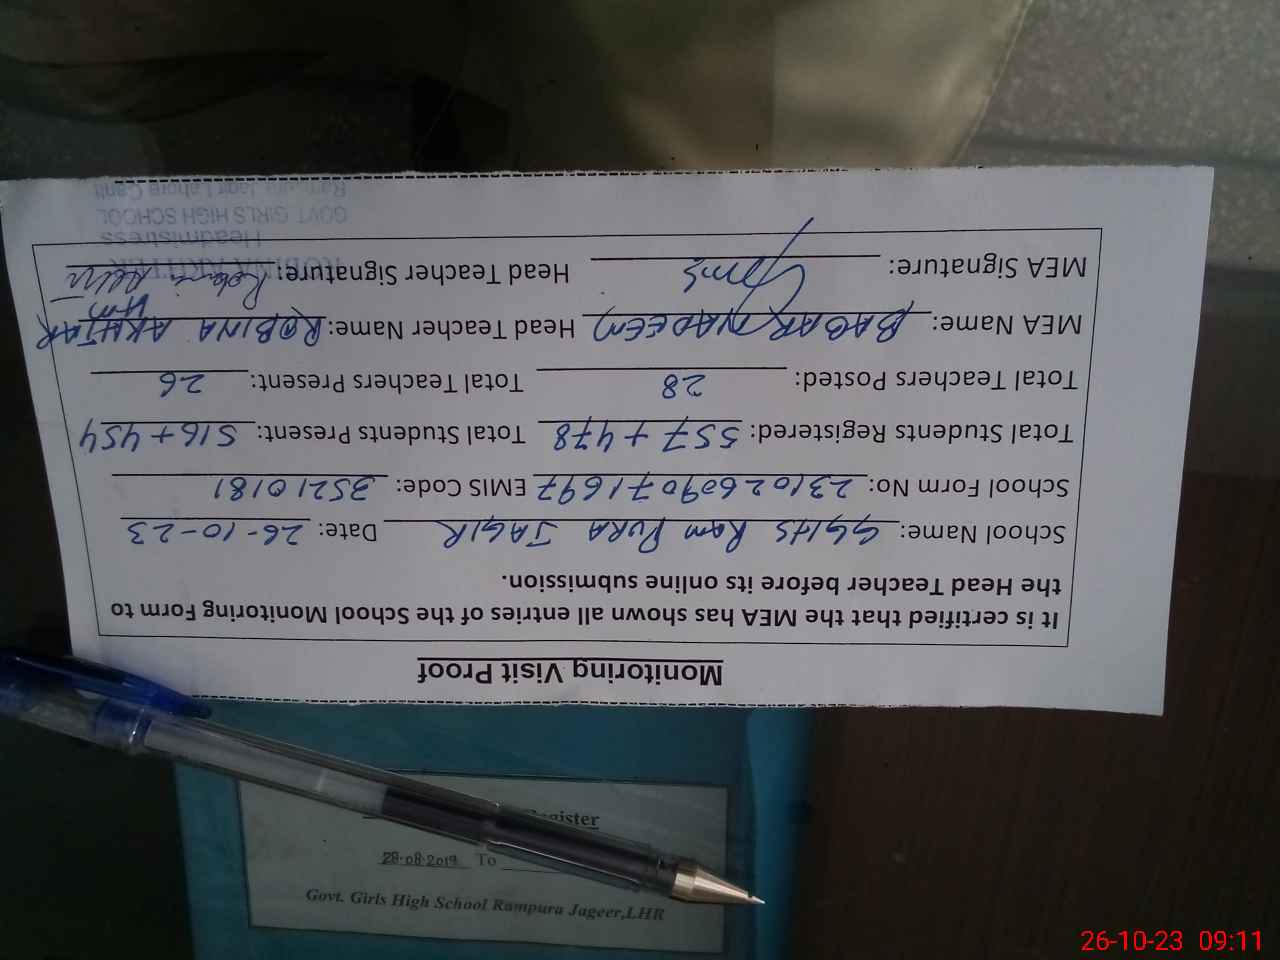 Monitoring Visit Proof
It is certified that the MEA has shown all entries of the School Monitoring Form to
the Head Teacher before its online submission.
School Name: GGHS Ram PURA JAGIR Date: 26-10-23
School Form No: 23102609071697 EMIS Code: 35210181
Total Students Registered: 557+478 Total Students Present: 516+454
Total Teachers Posted: 28 Total Teachers Present: 26
MEA Name: BABAR NADEEM Head Teacher Name: ROBINA AKHTAR
Hm
MEA Signature: Head Teacher Signature:
ROBINA AKHTER
Headmistress
GOVT GIRLS HIGH SCHOOL
Lahore Cantt
Register
28-08-2019 To
Govt. Girls High School Rampura Jageer,LHR
26-10-23 09:11